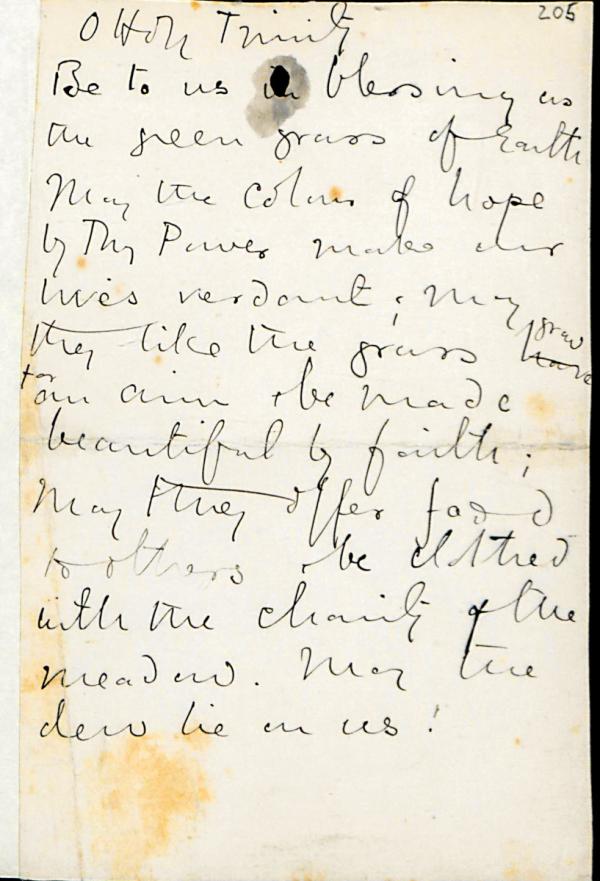 205
O Holy Trinity
Be to us in blessing as
the green grass of Earth
May the colour of hope
by Thy Power make our
lives verdant; may
they like the grass have grow
to an aim & be made
beautiful by faith;
May they offer food
to others & be clothed
with the charity of the
meadow. May the
dew lie on us!